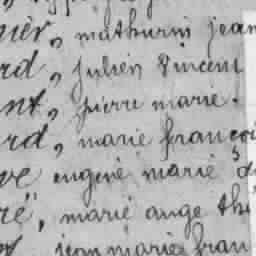 nier, mathurin jean
rd, julien Vincent
nt, pierre marie.
rd, marie françoi
ve eugené marie
ré, marie ange thé
jean marie fran